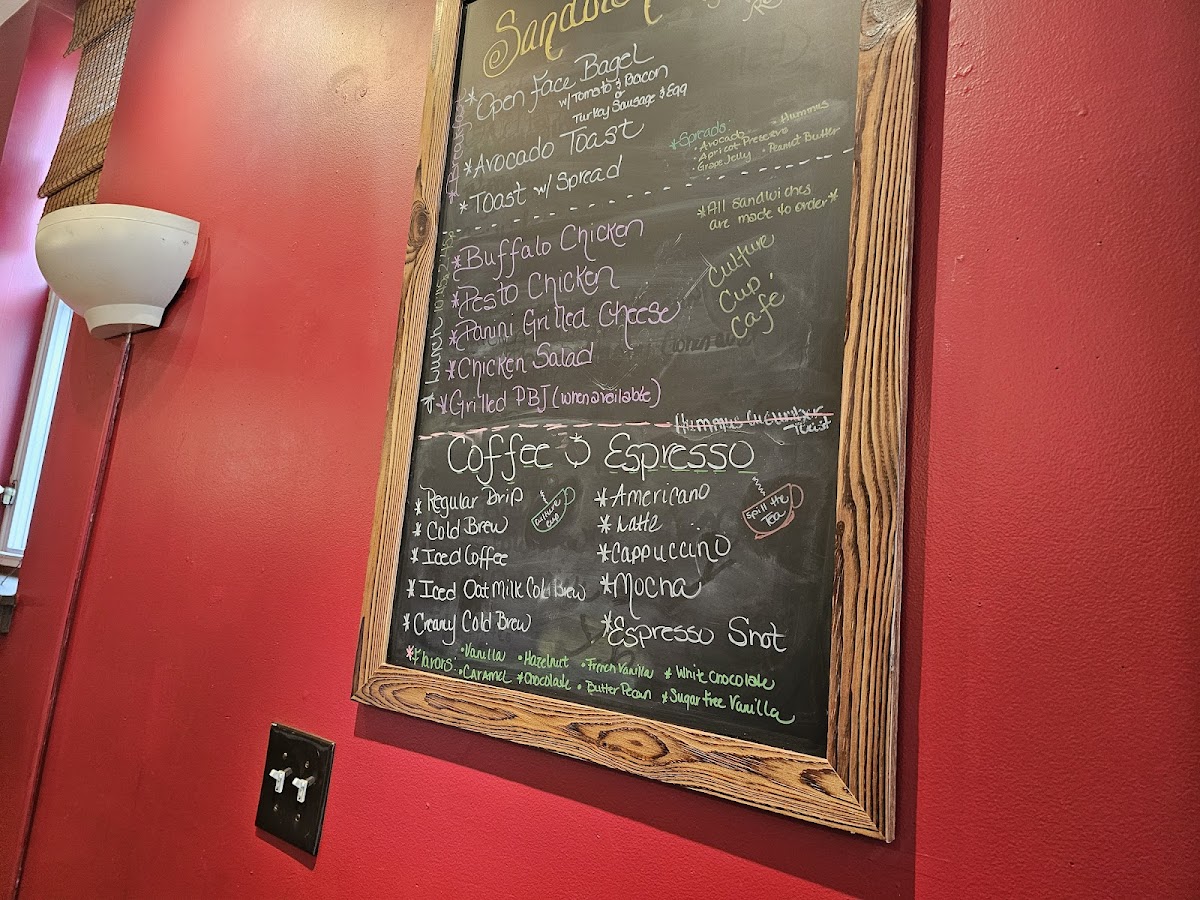 *Open Face Bagel
w/Tomato & Bacon
or
Turkey Sausage & Egg
*Avocado Toast
*Toast w/ Spread
*Spreads:
• Avocado • Hummus
• Apricot Preserve
• Grape Jelly • Peanut Butter
*All sandwiches
are made to order*
Culture
Cup
Café
* Lunch
*Buffalo Chicken
*Pesto Chicken
*Panini Grilled Cheese
*Chicken Salad
*Grilled PBJ (when available)
Hummus Cucumber
Twist
Coffee & Espresso
*Regular Drip
*Cold Brew
*Iced Coffee
*Iced Oat Milk Cold Brew
*Creamy Cold Brew
Culture
Cup
*Americano
*Latte
*Cappuccino
*Mocha
*Espresso Shot
Spill the
Tea
*Flavors: •Vanilla •Hazelnut •French Vanilla *White Chocolate
•Caramel *Chocolate •Butter Pecan *Sugar free Vanilla